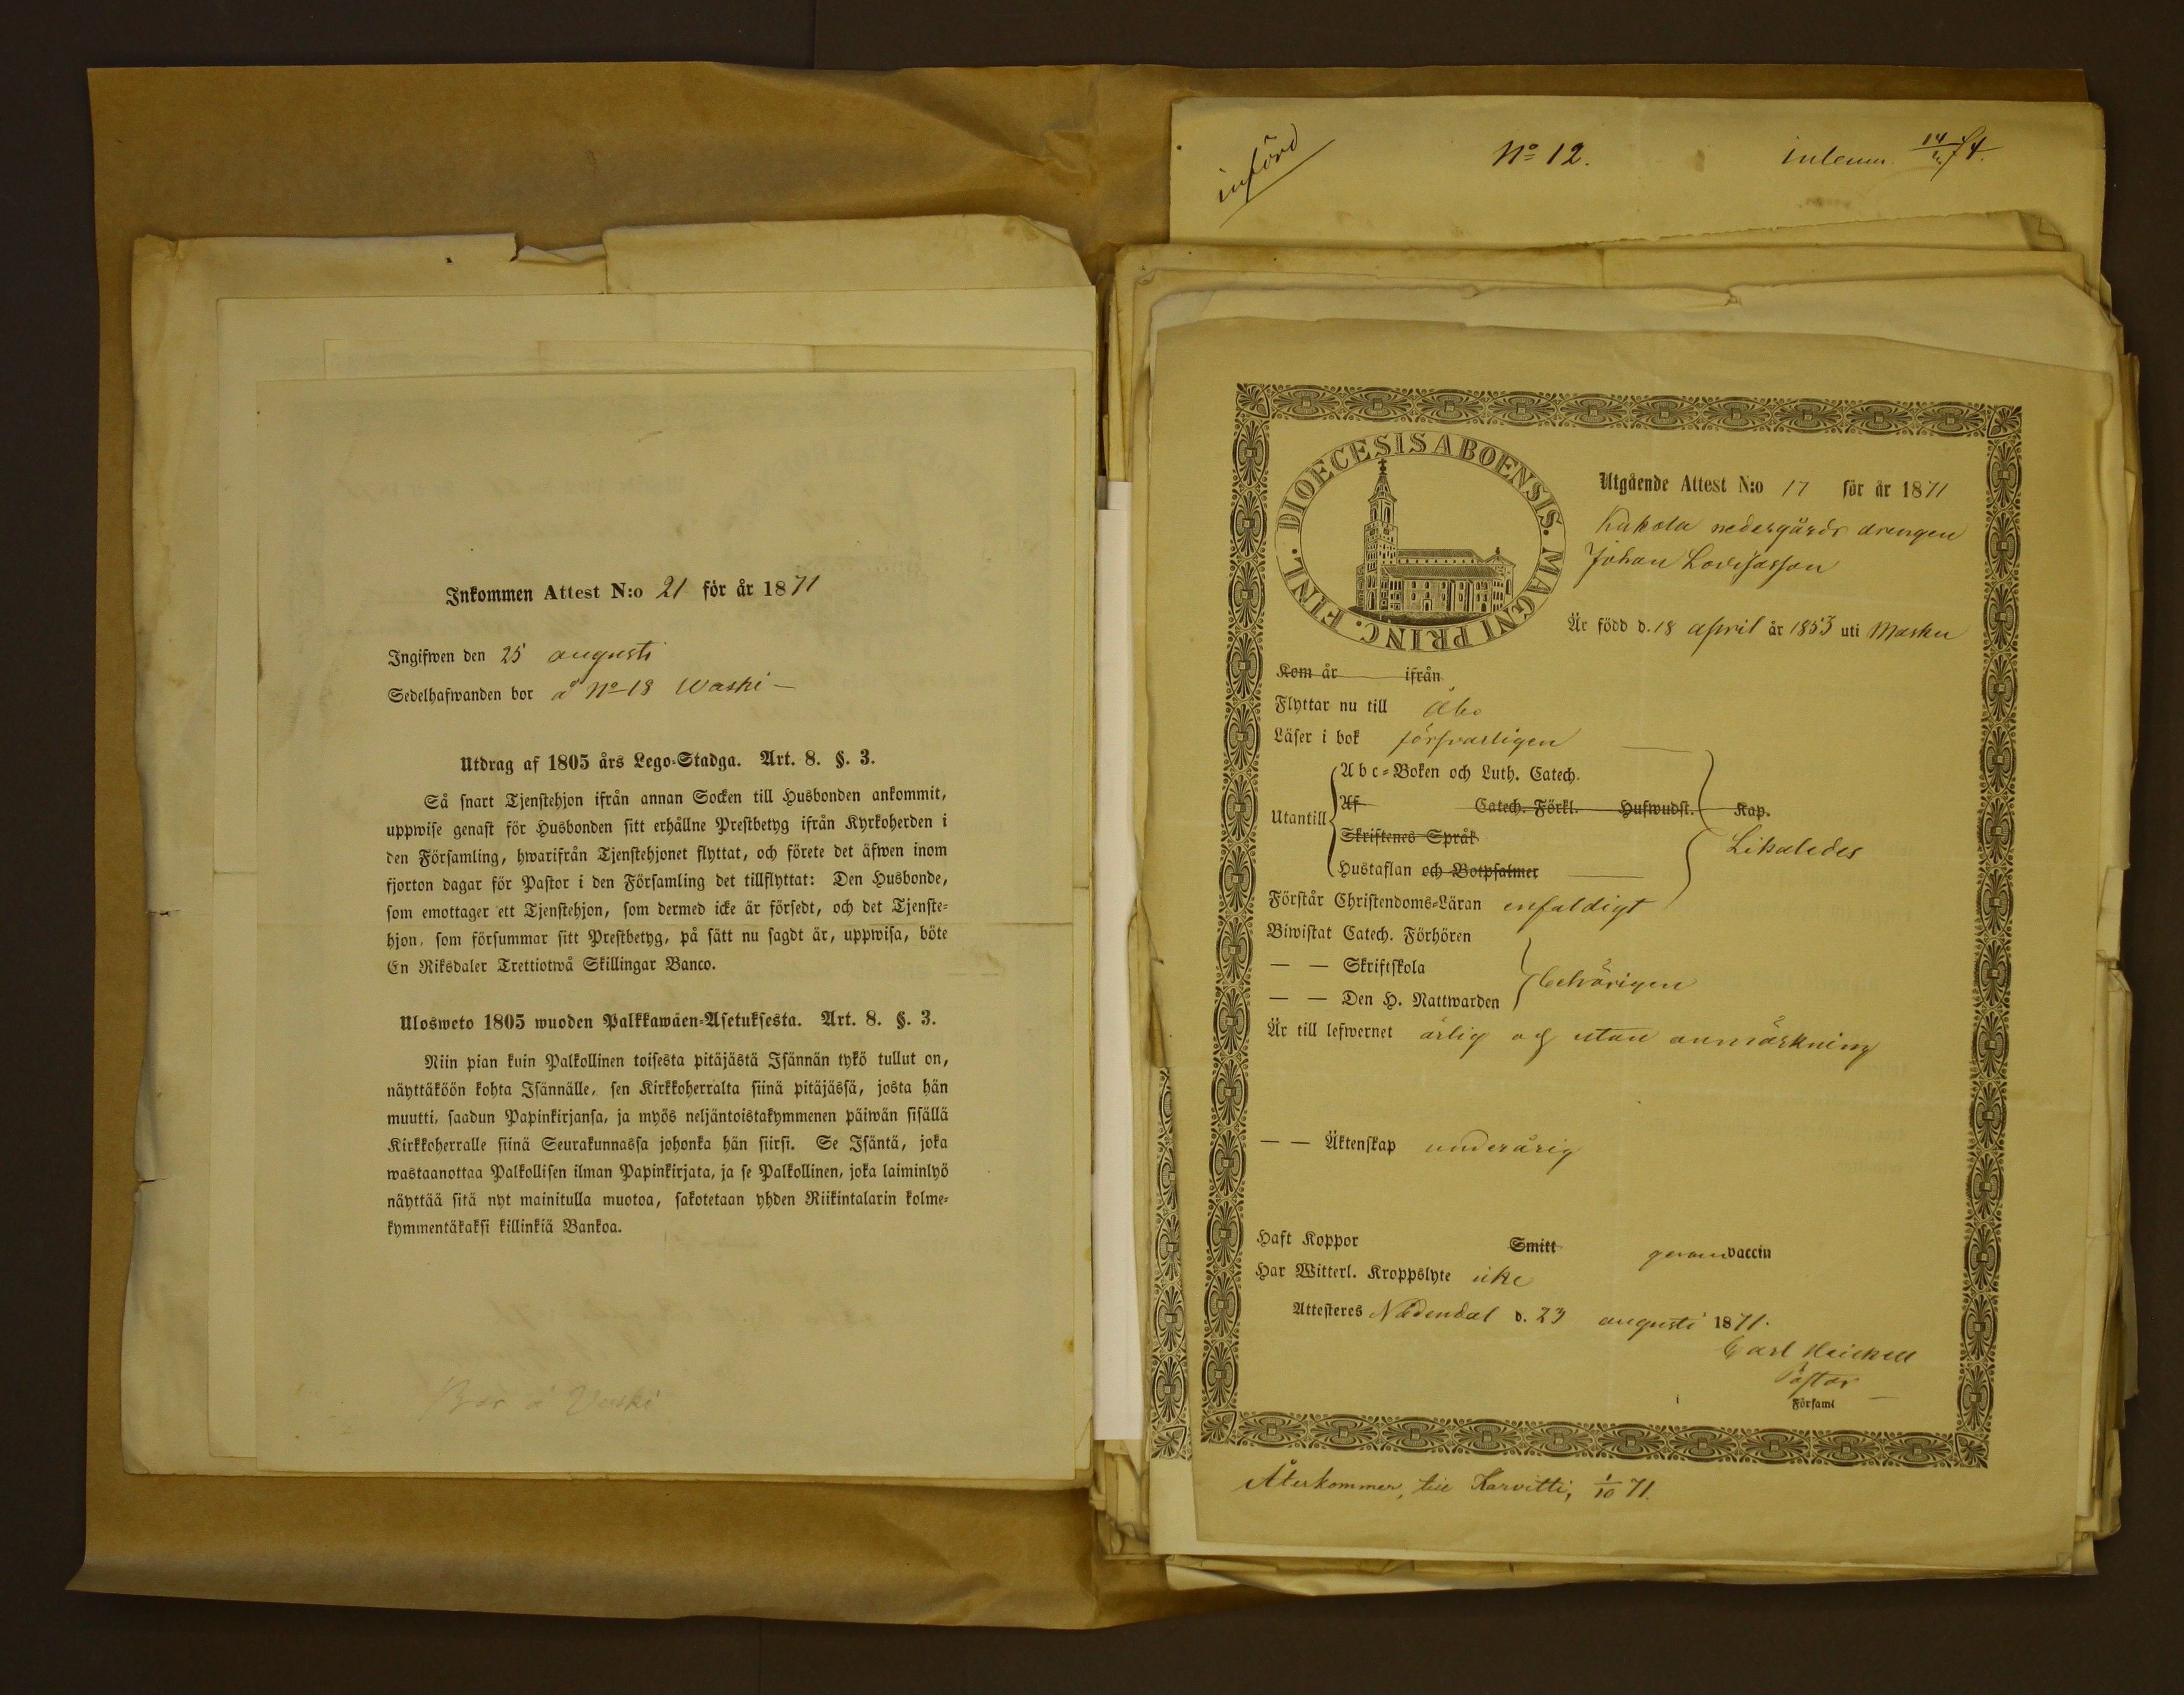 Inkommen Attest N:o 21 för år 1871
Ingifwen den 25 augusti
Sedelhafwanden bor å No 18 Waski —
Utdrag af 1805 års Lego-Stadga. Art. 8. §. 3.
Så snart Tjenstehjon ifrån annan Socken till Husbonden ankommit,
uppwise genast för Husbonden sitt erhållne Prestbetyg ifrån Kyrkoherden i
den Församling, hwarifrån Tjenstehjonet flyttat, och förete det äfwen inom
fjorton dagar för Pastor i den Församling det tillflyttat: Den Husbonde,
som emottager ett Tjenstehjon, som dermed icke är försedt, och det Tjenste-
hjon, som försummar sitt Prestbetyg, på sätt nu sagdt är, uppwisa, böte
En Riksdaler Trettiotwå Skillingar Banco.
Ulosweto 1805 wuoden Palkkawäen-Asetuksesta. Art. 8. §. 3.
Niin pian kuin Palkollinen toisesta pitäjästä Isännän tykö tullut on,
näyttäköön kohta Isännälle, sen Kirkkoherralta siinä pitäjässä, josta hän
muutti, saadun Papinkirjansa, ja myös neljäntoistakymmenen päiwän sisällä
Kirkkoherralle siinä Seurakunnassa johonka hän siirsi. Se Isäntä, joka
wastaanottaa Palkollisen ilman Papinkirjata, ja se Palkollinen, joka laiminlyö
näyttää sitä nyt mainitulla muotoa, sakotetaan yhden Riikintalarin kolme-
kymmentäkaksi killinkiä Bankoa.
Bor å Vaski
införd No 12. inlemn. 74.
DIOECESIS ABOENSIS. MAGNI PRINC. FINL.
Utgående Attest N:o 17 för år 1871
Kukola nedergårds drengen
Johan Lovisasson
Är född d. 18 april år 1853 uti Masku
Kom år ifrån
Flyttar nu till Åbo
Läser i bok försvarligen
Utantill
Abc-Boken och Luth. Catech.
Af Catech. Förkl. Hufwudst. Kap.
Skriftenes Språk
Likaledes
Hustaflan och Botpsalmer
Förstår Christendoms-Läran enfaldigt
Biwistat Catech. Förhören
— — Skriftskola
behörigen
— — Den H. Nattwarden
Är till lefwernet ärlig och utan anmärkning
— — Äktenskap underårig
Haft Koppor Smitt genom vaccin
Har Witterl. Kroppslyte icke
Attesteres Nådendal d. 23 augusti 1871.
Carl Heickell
Pastor
Församl
Återkommer, till Karvitti, 1/10 71.